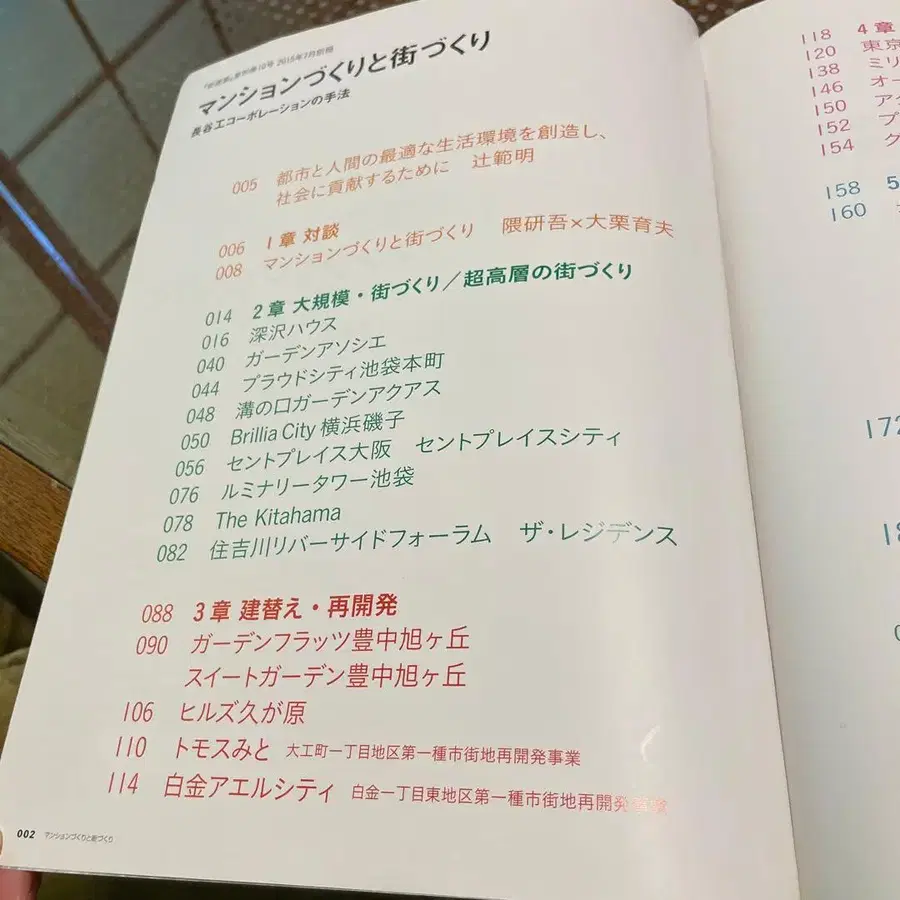 『新建築』臨時増刊 2015年7月別冊
マンションづくりと街づくり
長谷工コーポレーションの手法
005 都市と人間の最適な生活環境を創造し、
社会に貢献するために 辻範明
006 1章 対談
008 マンションづくりと街づくり 隈研吾×大栗育夫
014 2章 大規模・街づくり／超高層の街づくり
016 深沢ハウス
040 ガーデンアソシエ
044 プラウドシティ池袋本町
048 溝の口ガーデンアクアス
050 Brillia City 横浜磯子
056 セントプレイス大阪 セントプレイスシティ
076 ルミナリータワー池袋
078 The Kitahama
082 住吉川リバーサイドフォーラム ザ・レジデンス
088 3章 建替え・再開発
090 ガーデンフラッツ豊中旭ヶ丘
スイートガーデン豊中旭ヶ丘
106 ヒルズ久が原
110 トモスみと 大工町一丁目地区第一種市街地再開発事業
114 白金アエルシティ 白金一丁目東地区第一種市街地再開発事業
002 マンションづくりと街づくり
118 4章
120 東京
138 ミリ
146 オー
150 アク
152 プ
154 ク
158 5
160
172